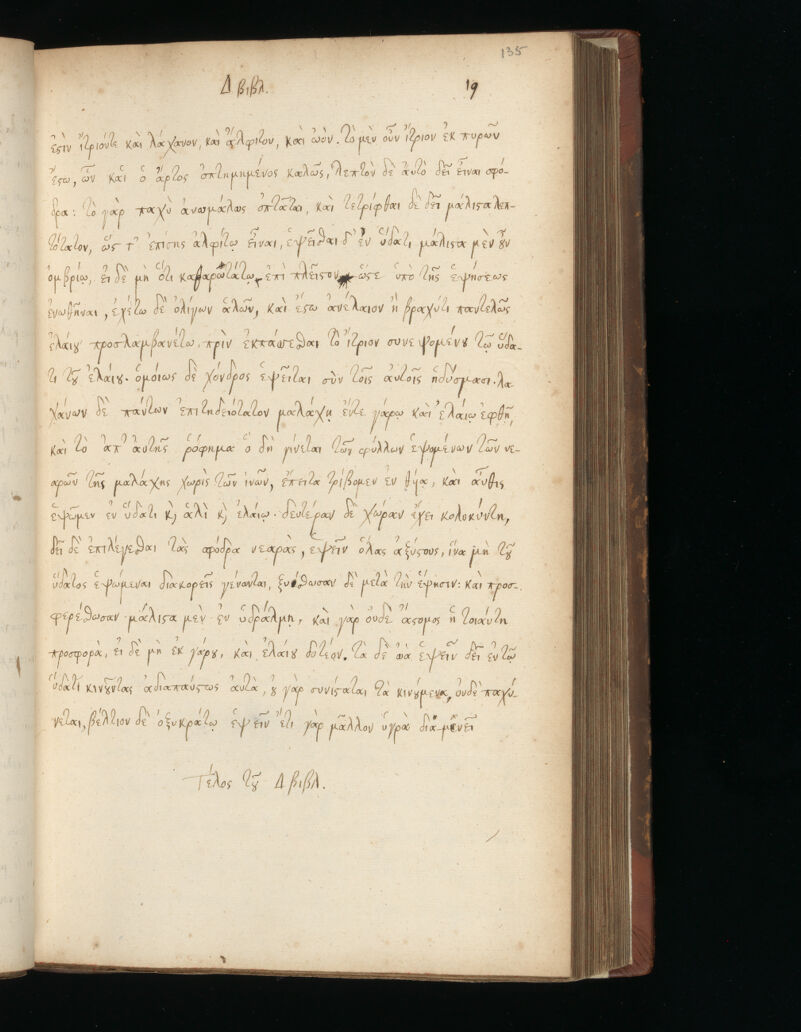 135
Δ βιβλ. 19
ἐςὶν ἴτριόντε καὶ λάχανον, καὶ ἄλφιτον, καὶ ὠόν. τὸ μὲν οὖν ἴτριον ἐκ πυρῶν
ἔςω, ὧν καὶ ὁ ἄρτος ὀπτημμένος καλῶς, λεπτὸν δὲ αὐτὸ δεῖ εἶναι σφό-
δρα: τὸ γὰρ παχὺ ἀνωμάλως ὀπτᾶται, καὶ τετρίφθαι δὲ δεῖ μάλιςα λεπ-
τότατον, ὥς τ' ἐπίσης ἀλφίτῳ εἶναι, ἑψεῖσθαι δ' ἐν ὕδατι μάλιςα μὲν οὖν
ὀμβρίῳ, εἰ δὲ μὴ ὅτι καθαρωτάτῳ, ἐπὶ πλεῖςον ὥςε ὑπὸ τῆς ἑψήσεως
ἑνωθῆναι, ἐχέτω δὲ ὀλίγων ἁλῶν, καὶ ἔςω ἀνέλαιον ἢ βραχύτι παντελῶς
ἐλαίου προσλαμβανέτω. πρὶν ἐκπάσεσθαι τὸ ἴτριον συνεψομένου τῷ ὕδα-
τι τοῦ ἐλαίου. ὁμοίως δὲ χόνδρος ἑψεῖται σὺν τοῖς αὐτοῖς ἡδύσμασι. λα
χάνων δὲ πάντων ἐπιτηδειότατον μαλάχη ἔντε γάρῳ καὶ ἐλαίῳ ἑφθῇ,
καὶ τὸ ἀπ' αὐτῆς ῥόφημα ὃ δὴ γίνεται τῶν φύλλων ἑψομένων τῶν νε-
αρῶν τῆς μαλάχης χωρὶς τῶν ἰνῶν, ἔπειτα τρίβομεν ἐν θυίᾳ, καὶ αὖθις
ἑψῶμεν ἐν ὕδατι κ̀ ἁλὶ κ̀ ἐλαίῳ. δευτέραν δὲ χώραν ἔχει κολοκύντη,
δεῖ δὲ ἐπιλέγεσθαι τὰς σφόδρα νεαρὰς, ἑψεῖν ὅλας ἀξύςους, ἵνα μὴ τοῦ
ὕδατος ἑψώμεναι διακορεῖς γένωνται, ξυέσθωσαν δὲ μετὰ τὴν ἕψησιν: καὶ προσ-
φερέσθωσαν μάλιςα μὲν ἐν ὑδράλμῃ, καὶ γὰρ οὐδὲ ἄςομος ἡ τοιαύτη
προσφορὰ, εἰ δὲ μὴ ἐκ γάρου, καὶ ἐλαίου δοτέον. τὰ δὲ ὠὰ ἑψεῖν δεῖ ἐν τῷ
ὕδατι κινοῦντας ἀδιαπαύςως αὐτὰ, οὐ γὰρ συνίςαται τὰ κινούμενα, οὐδὲ παχύ-
νεται, βέλτιον δὲ ὀξυκράτῳ ἑψεῖν ἔτι γὰρ μᾶλλον ὑγρὰ διαμένει
Τέλος τοῦ Δ βιβλ.